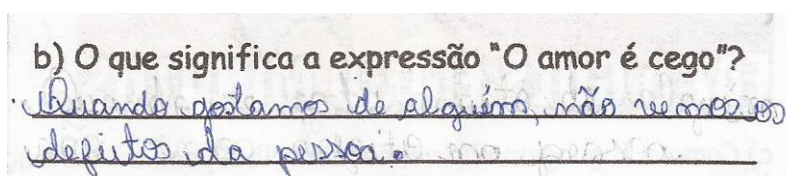 b) O que significa a expressão "O amor é cego"?
Quando gostamos de alguém, não vemos os
defeitos da pessoa.